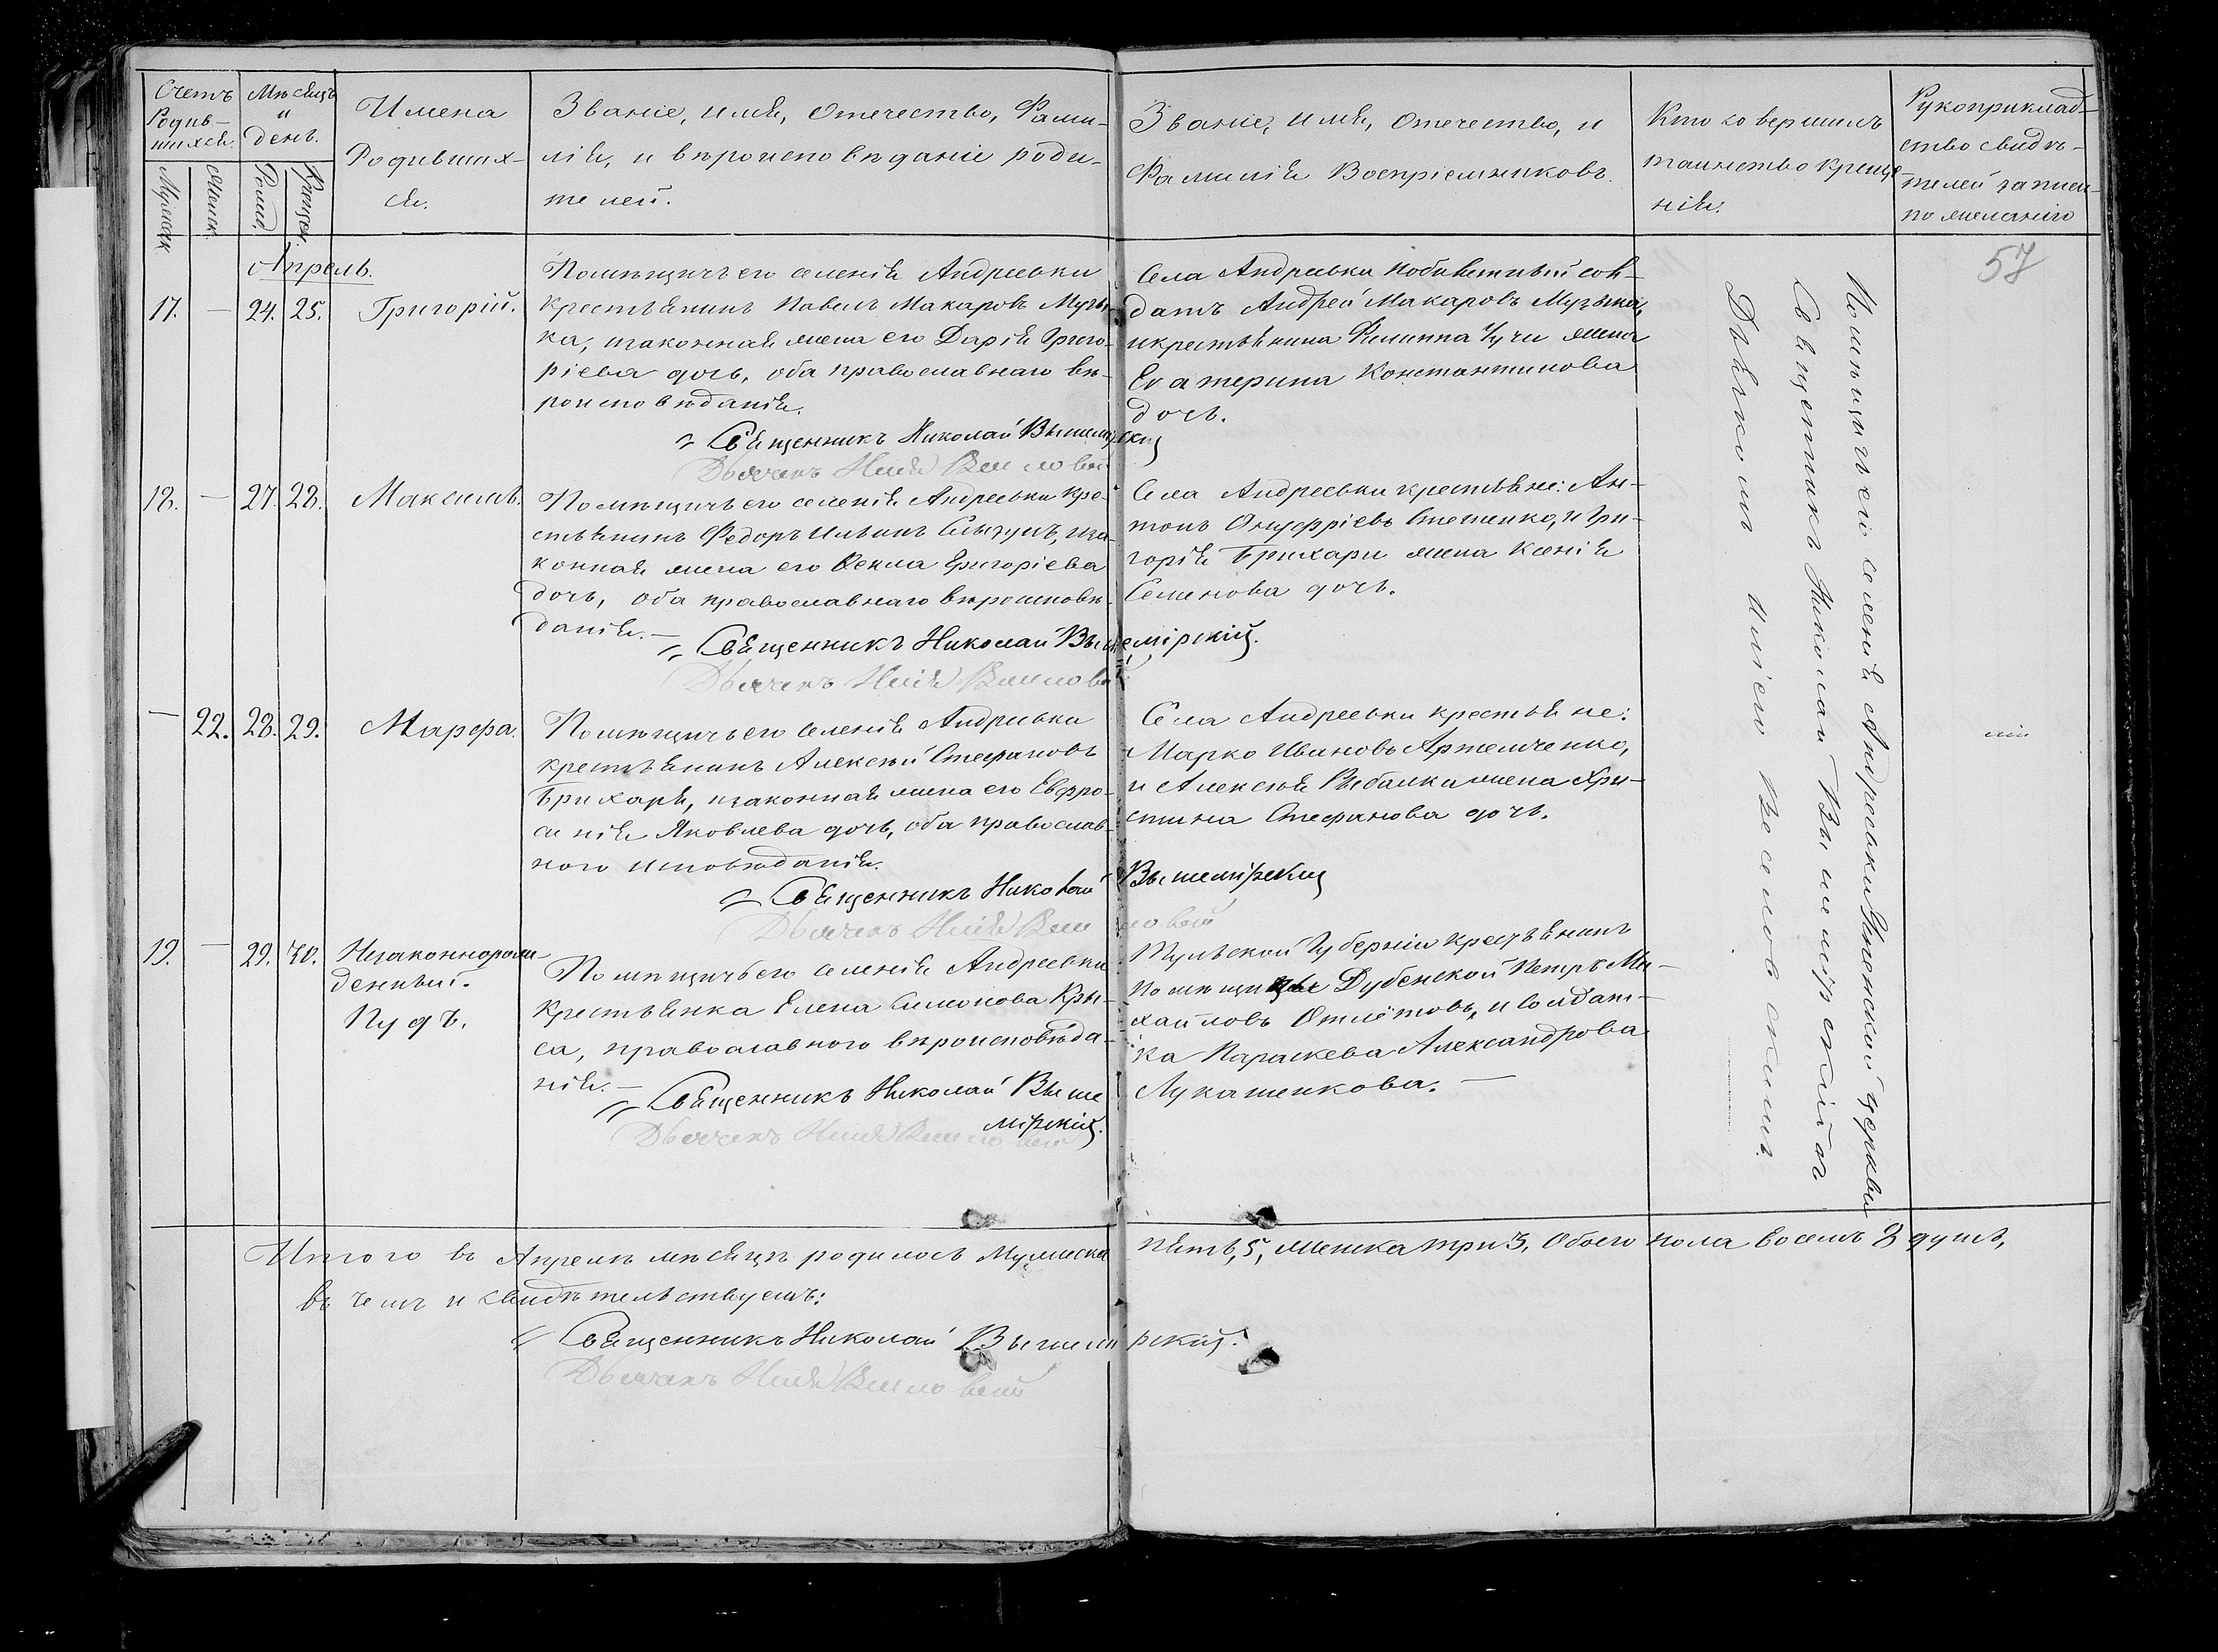 Счетъ
Родив-
шихся.
Мѣсяцъ
и
день.
Имена
Родивших-
ся.
Званіе, имя, отечество, Фами-
лія, и вѣроисповѣданіе роди-
телей.
Званіе, имя, отечество, и
Фамилія Воспріемниковъ.
Кто совершилъ
таинство креще-
нія.
Рукоприклад-
ство свидѣ-
телей записи
по желанію
Мужеск.
Женск.
Рожд.
Крещен.
57
Апрель.
17. — 24. 25. Григорій.
Помѣщичьего селенія Андреевки
крестьянинъ Павелъ Макаровъ Музы-
ка, изаконная жена его Дарія Григо-
ріева дочь, оба православнаго вѣ-
роисповѣданія.
Священникъ Николай Вышемірскій
Дьячекъ Илія Веселовскій
Села Андреевки
датъ Андрей Макаровъ Музыка,
икрестьянина Филиппа Чучи жена
Екатерина Константинова
дочь.
18. — 27. 28. Максимъ.
Помѣщичьего селенія Андреевки кре-
стьянинъ Федоръ Ильинъ иза-
конная жена его Векла Григоріева
дочь, оба православнаго вѣроисповѣ-
данія. —
Священникъ Николай Вышемірскій.
Дьячекъ Илія Веселовскій
Села Андреевки крестьяне: Ан-
тонъ Онуфріевъ Стеценко, и Гри-
горія Брихари жена Ксенія
Семенова дочь.
— 22. 28. 29. Марфа.
Помѣщичьего селенія Андреевки
крестьянинъ Алексѣй Стефановъ
Брихаря, изаконная жена его Евфро-
синія Яковлева дочь, оба православ-
ного исповѣданія.
Священникъ Николай Вышемірскій
Дьячекъ Илія Веселовскій
Села Андреевки крестьяне:
Марко Ивановъ Артемченко,
и Алексѣя Рыбалки жена Хри-
стина Стефанова дочь.
19. — 29. 30. Незаконнорож
денный.
Пудъ.
Помѣщичьего селенія Андреевки
крестьянка Елена Симонова Кры-
са, православного вѣроисповѣда-
нія. —
Священникъ Николай Выше
мірскій.
Дьячекъ Илія Веселовскій
Тульской Губерніи крестьянинъ
помѣщицы Дубенской Петръ Ми-
хайловъ Отлётовъ, и солдат-
ка Параскева Александрова
Лукашенкова. —
Помѣщичьего селенія Андреевки Успенской церкви
Священникъ Николай Вышемірскій съ
Дьякомъ Иліею Веселовскимъ.
Итого въ Апрелѣ мѣсяцѣ родилось Мужеска пять, 5, женска три 3, Обоего пола восемь 8 душъ,
въ чемъ и свидѣтельствуемъ:
Священникъ Николай Вышемірскій.
Дьячекъ Илія Веселовскій